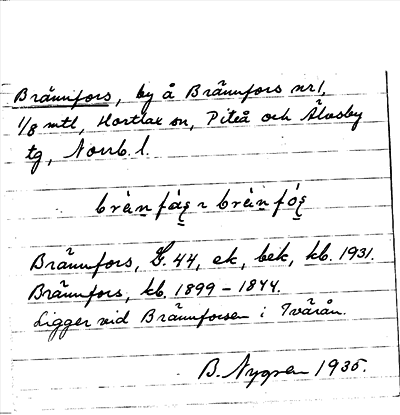 Brännfors, by å Brännfors nr 1,
1/8 mtl, Hortlax sn, Piteå och Älvsby
tg, Norrb. l.
Brännfors, G. 44, ek, bek, kb. 1931.
Brännfors, kb. 1899 - 1844.
Ligger vid Brännforsen i Tvärån.
B. Nygren 1935.